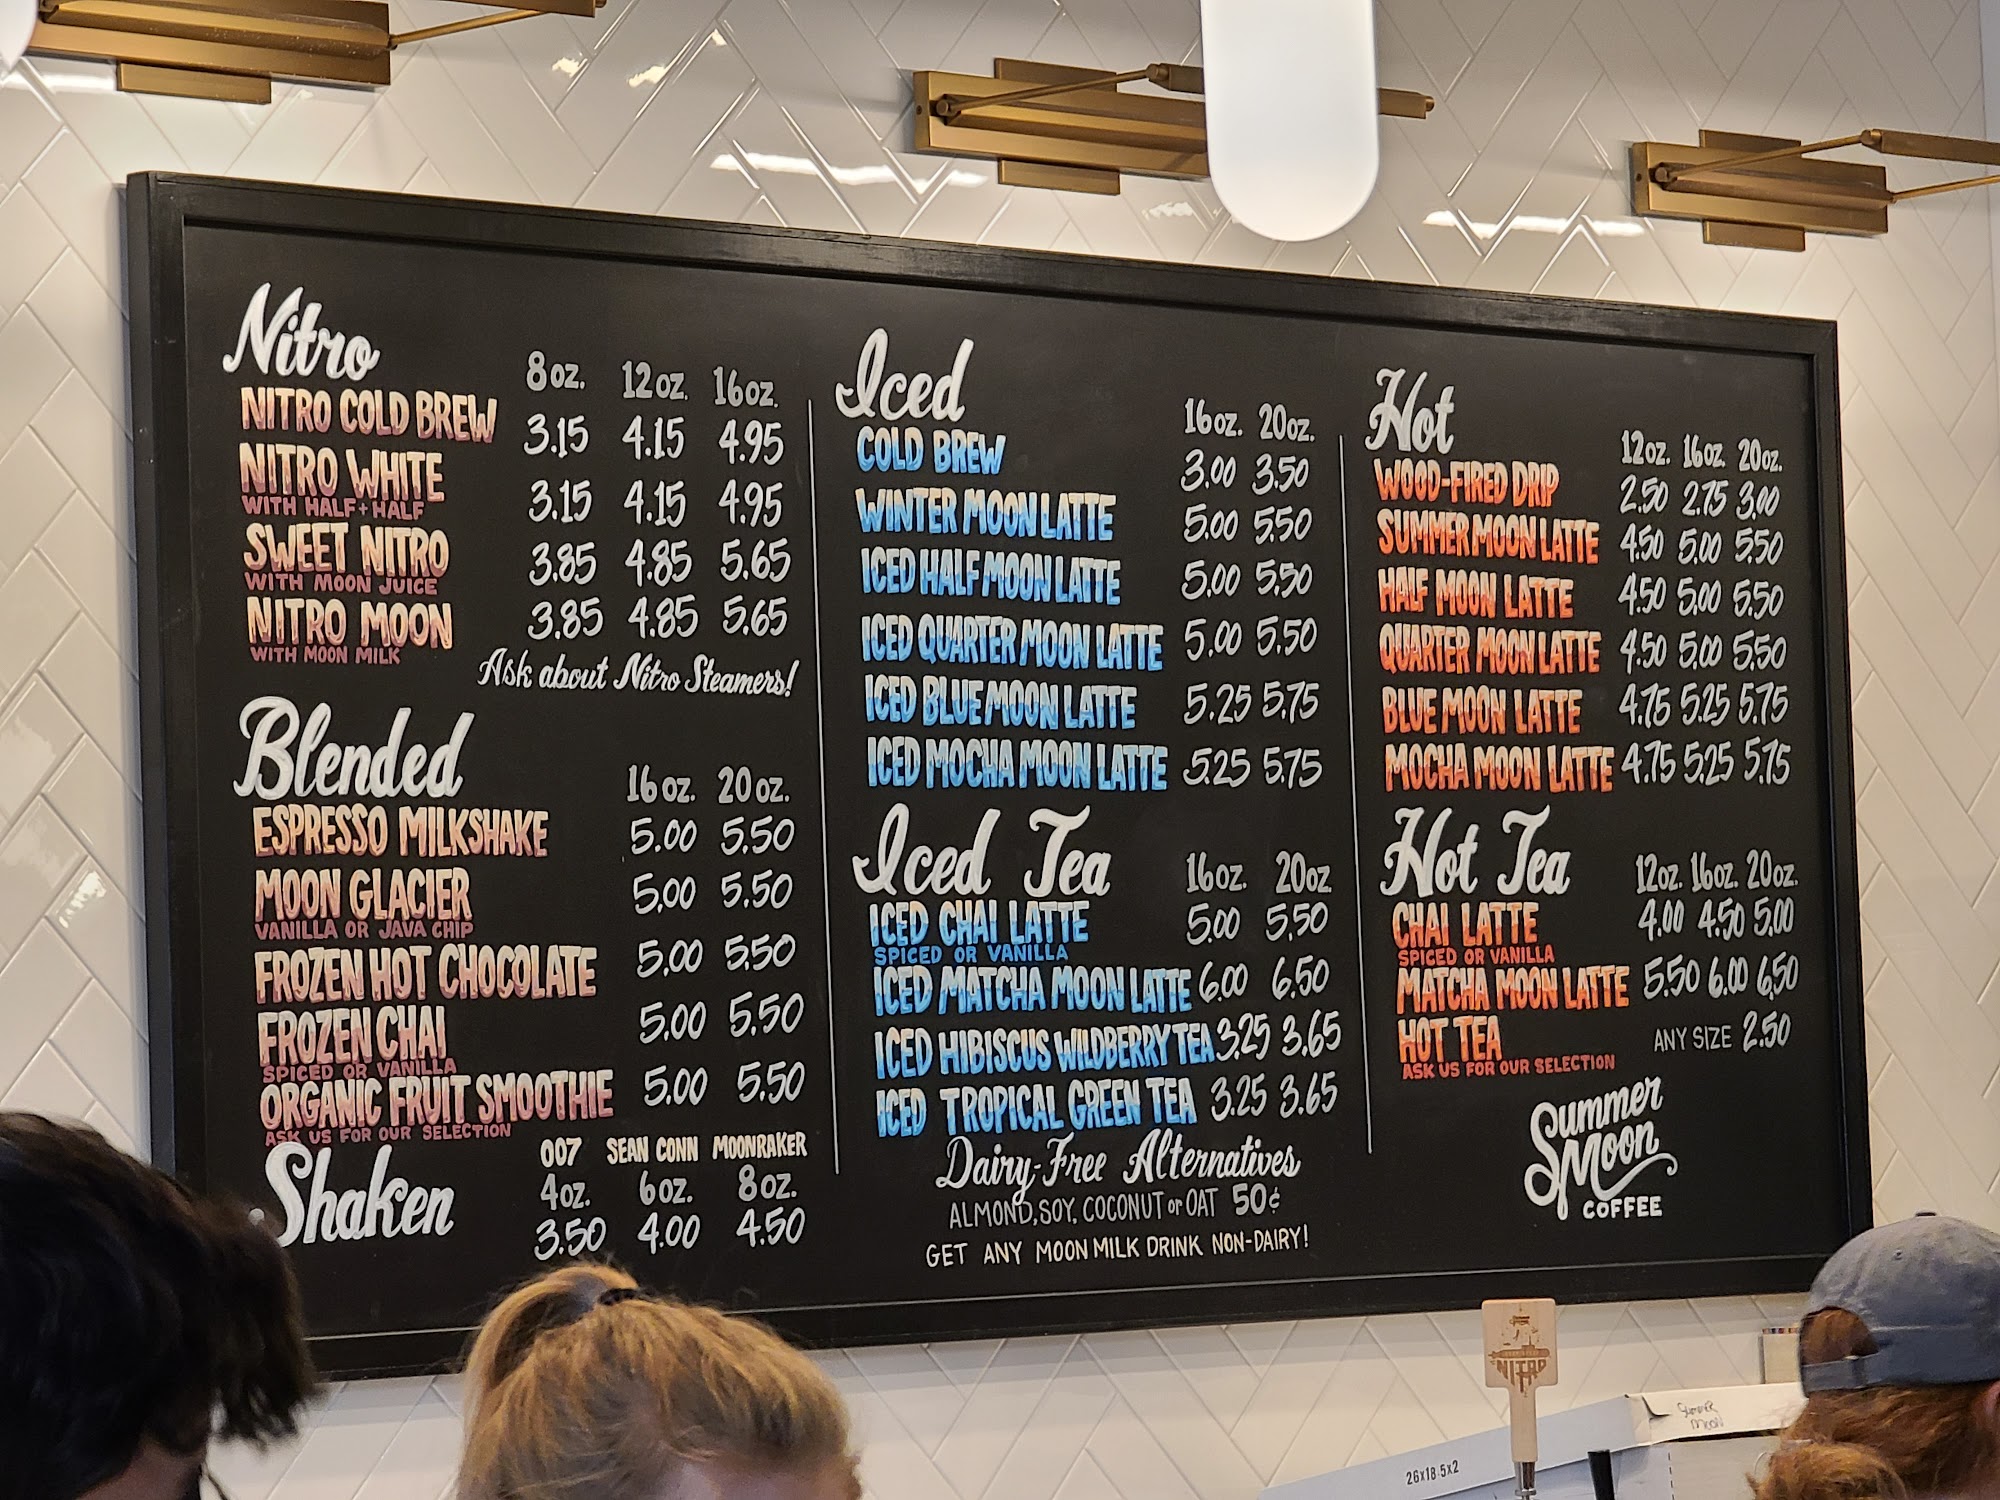 Nitro
8 oz. 12 oz. 16 oz.
NITRO COLD BREW 3.15 4.15 4.95
NITRO WHITE 3.15 4.15 4.95
WITH HALF + HALF
SWEET NITRO 3.85 4.85 5.65
WITH MOON JUICE
NITRO MOON 3.85 4.85 5.65
WITH MOON MILK
Ask about Nitro Steamers!
Blended
16 oz. 20 oz.
ESPRESSO MILKSHAKE 5.00 5.50
MOON GLACIER 5.00 5.50
VANILLA OR JAVA CHIP
FROZEN HOT CHOCOLATE 5.00 5.50
FROZEN CHAI 5.00 5.50
SPICED OR VANILLA
ORGANIC FRUIT SMOOTHIE 5.00 5.50
ASK US FOR OUR SELECTION
Shaken
007 SEAN CONN MOONRAKER
4 oz. 6 oz. 8 oz.
3.50 4.00 4.50
Iced
16 oz. 20 oz.
COLD BREW 3.00 3.50
WINTER MOON LATTE 5.00 5.50
ICED HALF MOON LATTE 5.00 5.50
ICED QUARTER MOON LATTE 5.00 5.50
ICED BLUE MOON LATTE 5.25 5.75
ICED MOCHA MOON LATTE 5.25 5.75
Iced Tea
16 oz. 20 oz
ICED CHAI LATTE 5.00 5.50
SPICED OR VANILLA
ICED MATCHA MOON LATTE 6.00 6.50
ICED HIBISCUS WILDBERRY TEA 3.25 3.65
ICED TROPICAL GREEN TEA 3.25 3.65
Dairy-Free Alternatives
ALMOND, SOY, COCONUT or OAT 50¢
GET ANY MOON MILK DRINK NON-DAIRY!
Hot
12 oz. 16 oz. 20 oz.
WOOD-FIRED DRIP 2.50 2.75 3.00
SUMMER MOON LATTE 4.50 5.00 5.50
HALF MOON LATTE 4.50 5.00 5.50
QUARTER MOON LATTE 4.50 5.00 5.50
BLUE MOON LATTE 4.75 5.25 5.75
MOCHA MOON LATTE 4.75 5.25 5.75
Hot Tea
12 oz. 16 oz. 20 oz.
CHAI LATTE 4.00 4.50 5.00
SPICED OR VANILLA
MATCHA MOON LATTE 5.50 6.00 6.50
HOT TEA ANY SIZE 2.50
ASK US FOR OUR SELECTION
Summer
Moon
COFFEE
NITRO
Summer
Moon
26x18.5x2